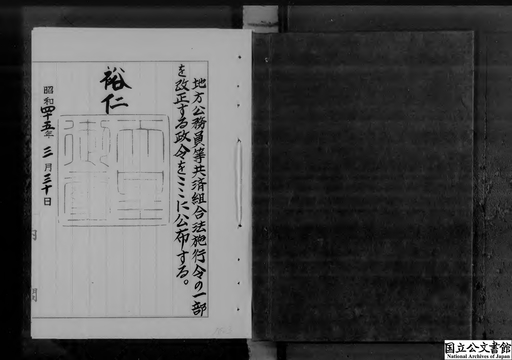 地方公務員等共済組合法施行令の一部
を改正する政令をここに公布する。
裕仁
天皇御璽
昭和四十五年三月三十日
国立公文書館
National Archives of Japan